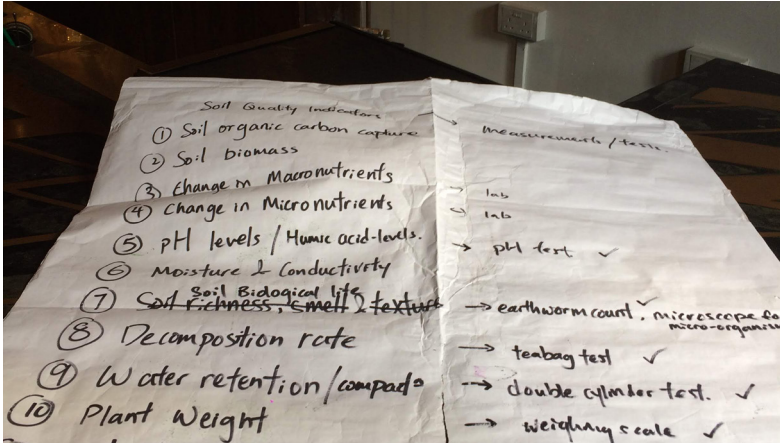 Soil Quality Indicators → measurements / tests.
① Soil organic carbon capture
② Soil biomass
③ Change in Macronutrients → lab
④ Change in Micronutrients → lab
⑤ pH levels / Humic acid-levels. → pH test ✓
⑥ Moisture & Conductivity
Soil Biological life
⑦ Soil richness, smell & texture → earthworm count ✓, microscope fo
micro-organis
⑧ Decomposition rate → teabag test ✓
⑨ Water retention / → double cylinder test. ✓
⑩ Plant Weight → weighing scale ✓